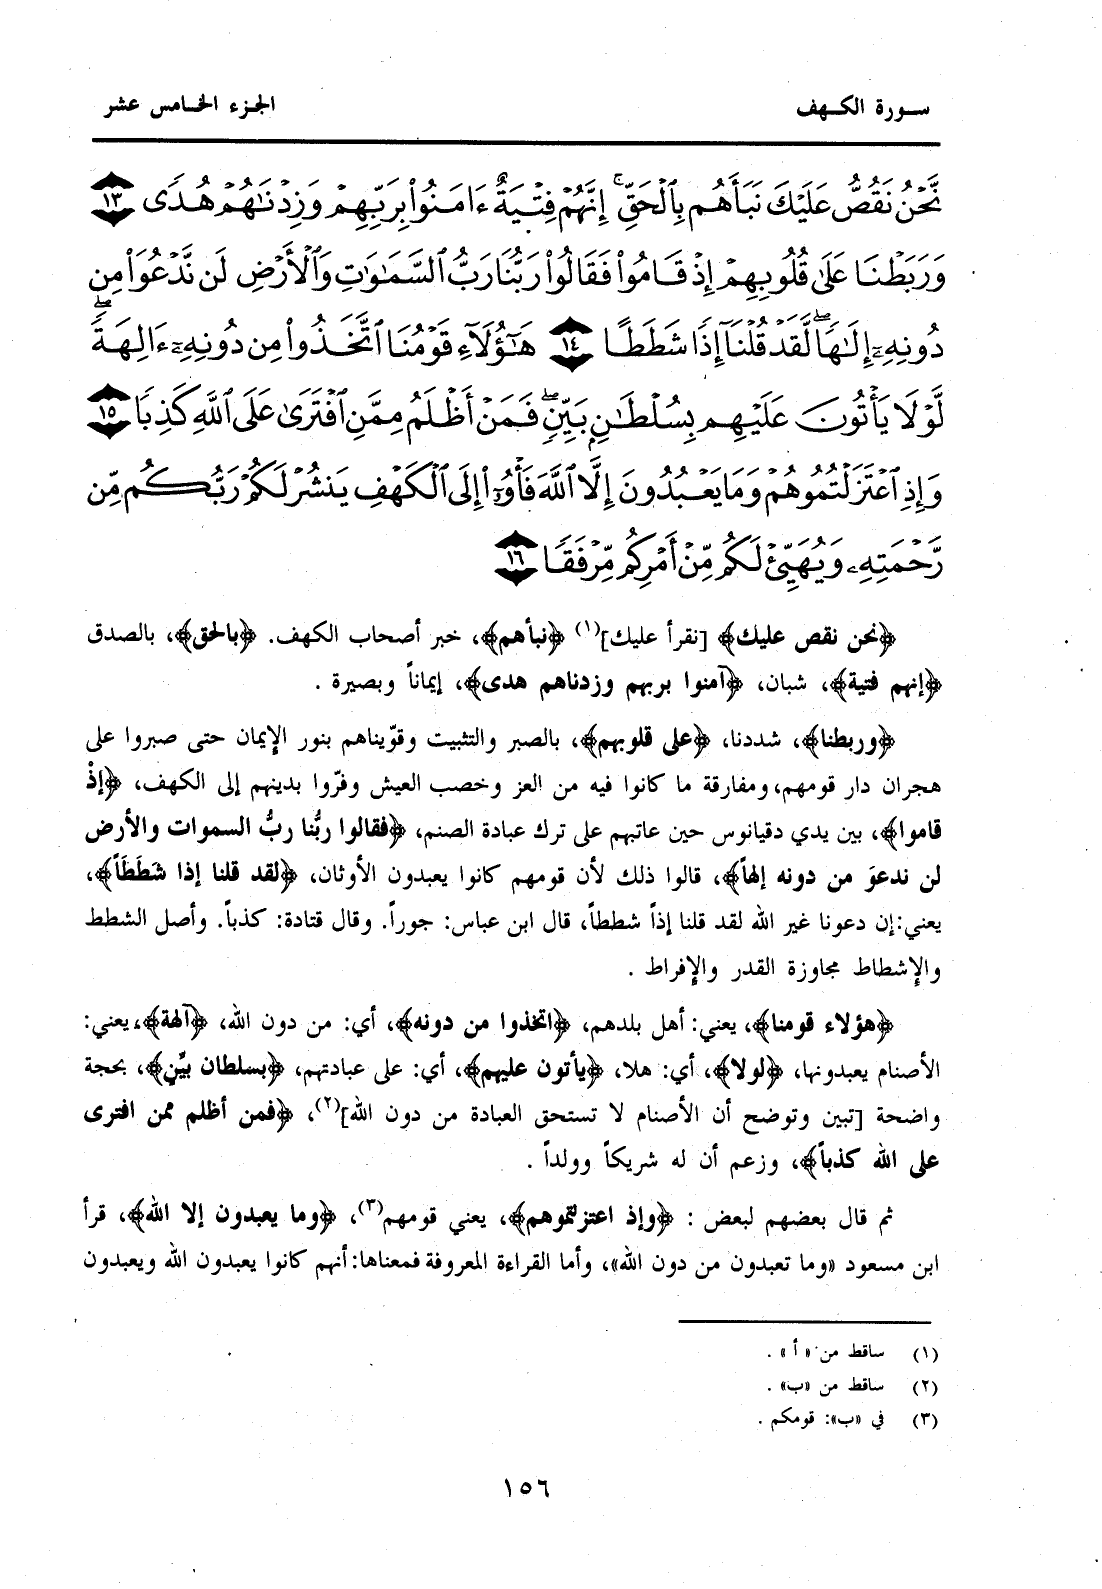 سورة الكهف
الجزء الخامس عشر
نَّحۡنُ نَقُصُّ عَلَيۡكَ نَبَأَهُم بِٱلۡحَقِّۚ إِنَّهُمۡ فِتۡيَةٌ ءَامَنُواْ بِرَبِّهِمۡ وَزِدۡنَٰهُمۡ هُدٗى ١٣
وَرَبَطۡنَا عَلَىٰ قُلُوبِهِمۡ إِذۡ قَامُواْ فَقَالُواْ رَبُّنَا رَبُّ ٱلسَّمَٰوَٰتِ وَٱلۡأَرۡضِ لَن نَّدۡعُوَاْ مِن
دُونِهِۦٓ إِلَٰهٗاۖ لَّقَدۡ قُلۡنَآ إِذٗا شَطَطًا ١٤ هَٰٓؤُلَآءِ قَوۡمُنَا ٱتَّخَذُواْ مِن دُونِهِۦٓ ءَالِهَةٗۖ
لَّوۡلَا يَأۡتُونَ عَلَيۡهِم بِسُلۡطَٰنِۭ بَيِّنٖۖ فَمَنۡ أَظۡلَمُ مِمَّنِ ٱفۡتَرَىٰ عَلَى ٱللَّهِ كَذِبٗا ١٥
وَإِذِ ٱعۡتَزَلۡتُمُوهُمۡ وَمَا يَعۡبُدُونَ إِلَّا ٱللَّهَ فَأۡوُۥٓاْ إِلَى ٱلۡكَهۡفِ يَنشُرۡ لَكُمۡ رَبُّكُم مِّن
رَّحۡمَتِهِۦ وَيُهَيِّئۡ لَكُم مِّنۡ أَمۡرِكُم مِّرۡفَقٗا ١٦
﴿نحن نقص عليك﴾ [نقرأ عليك](١) ﴿نبأهم﴾، خبر أصحاب الكهف. ﴿بالحق﴾، بالصدق
﴿إنهم فتية﴾، شبان، ﴿آمنوا بربهم وزدناهم هدى﴾، إيماناً وبصيرة .
﴿وربطنا﴾، شددنا، ﴿على قلوبهم﴾، بالصبر والتثبيت وقوّيناهم بنور الإيمان حتى صبروا على
هجران دار قومهم، ومفارقة ما كانوا فيه من العز وخصب العيش وفرّوا بدينهم إلى الكهف، ﴿إذْ
قاموا﴾، بين يدي دقيانوس حين عاتبهم على ترك عبادة الصنم، ﴿فقالوا ربُّنا ربُّ السموات والأرض
لن ندعوَ من دونه إلهاً﴾، قالوا ذلك لأن قومهم كانوا يعبدون الأوثان، ﴿لقد قلنا إذا شَطَطَاً﴾،
يعني: إن دعونا غير الله لقد قلنا إذاً شططاً، قال ابن عباس: جوراً. وقال قتادة: كذباً. وأصل الشطط
والإشطاط مجاوزة القدر والإفراط .
﴿هؤلاء قومنا﴾، يعني: أهل بلدهم، ﴿اتخذوا من دونه﴾، أي: من دون الله، ﴿آلهة﴾، يعني:
الأصنام يعبدونها، ﴿لولا﴾، أي: هلا، ﴿يأتون عليهم﴾، أي: على عبادتهم، ﴿بسلطان بيِّنٍ﴾، بحجة
واضحة [تبين وتوضح أن الأصنام لا تستحق العبادة من دون الله](٢)، ﴿فمن أظلم ممن افترى
على الله كذباً﴾، وزعم أن له شريكاً وولداً .
ثم قال بعضهم لبعض : ﴿وإذ اعتزلتموهم﴾، يعني قومهم(٣)، ﴿وما يعبدون إلا الله﴾، قرأ
ابن مسعود «وما تعبدون من دون الله»، وأما القراءة المعروفة فمعناها: أنهم كانوا يعبدون الله ويعبدون
(١) ساقط من «أ» .
(٢) ساقط من «ب» .
(٣) في «ب»: قومكم .
١٥٦